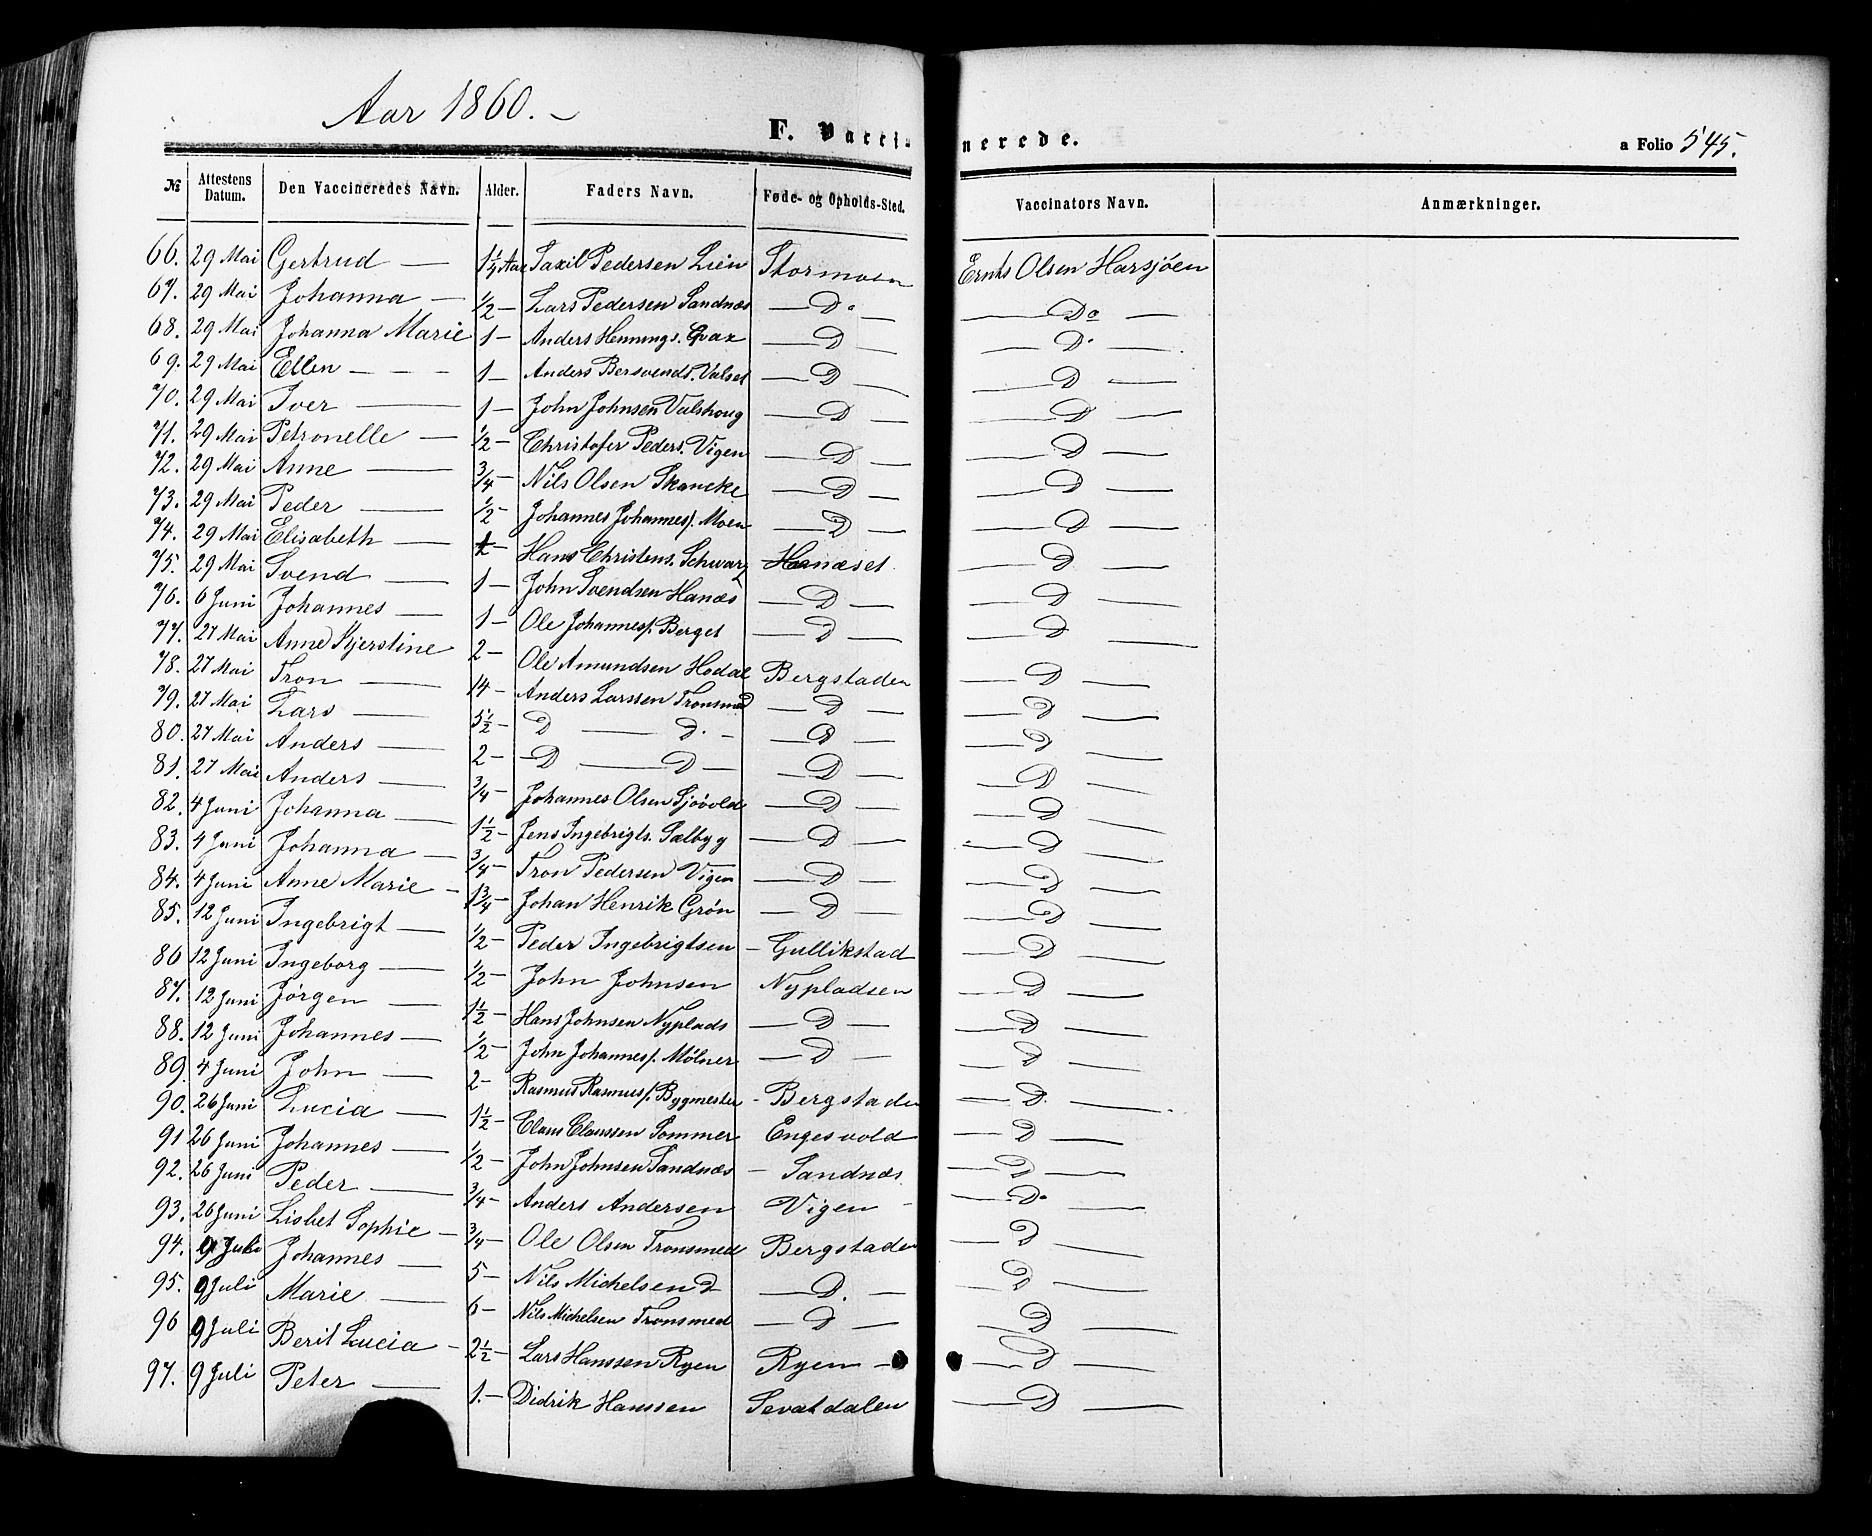 Aar 1860. –
F. Vaccinerede.
a Folio 545.
№ Attestens Datum. Den Vaccineredes Navn. Alder. Faders Navn. Føde- og Opholds-Sted. Vaccinators Navn. Anmærkninger.
66. 29 Mai Gertrud — Taxil Pedersen Lien Stormoen Ernts Olsen Harsjøen
67. 29 Mai Johanna — 1/2 – Lars Pedersen Sandnæs — D° — — Do —
68. 29 Mai Johanna Marie 1 – Anders Hennings. — D — — D° —
69. 29 Mai Ellen – – – 1 – Anders Bersvends. Valset — D — — D —
70. 29 Mai Iver — 1 – John Johnsen Valshoug — D — — D —
71. 29 Mai Petronelle — 1/2 – Christofer Peders. Vigen — D — — D —
72. 29 Mai Anne — 3/4 – Nils Olsen Skancke — D — — D —
73. 29 Mai Peder — 1/2 – Johannes Johannes/. Moen — D — — D —
74. 29 Mai Elisabeth — Hans Christens. Schwarz Hanæset — D —
75. 29 Mai Svend — 1 – John Svendsen Hanæs — D — — D —
76. 6 Juni Johannes — 1 – Ole Johannes/. Berget — D — — D —
77. 27 Mai Anne Kjerstine 2 – Ole Amundsen Hodal Bergstaden — D —
78. 27 Mai Tron — 14 – Anders Larssen Tronsmed — D — — D —
79. 27 Mai Lars — 5 1/2 – D — D. – — D — — D —
80. 27 Mai Anders — 2 – – D — D – — D — — D —
81. 27 Mai Anders — 3/4 – Johannes Olsen Sjøvold — D — — D —
82. 4 Juni Johanna — 1 1/2 – Jens Ingebrigts. Sælbyg — D — — D —
83. 4 Juni Johanna — 3/4 – Tron Pedersen Vigen — D — — D —
84. 4 Juni Anne Marie – 1 3/4 – Johan Henrik Grøn — D — — D —
85. 12 Juni Ingebrigt — 1/2 – Peder Ingebrigtsen – Gullikstad — D —
86 12 Juni Ingeborg — 1/2 – John Johnsen Nypladsen — D —
87. 12 Juni Jørgen — 1 1/2 – Hans Johnsen Nyplads — D — — D —
88. 12 Juni Johannes — 1/2 – John Johannes/. Mølner — D — — D —
89. 4 Juni John — 2 – Rasmus Rasmus/. Bygmester – Bergstaden — D —
90. 26 Juni Lucia — 1 1/2 – Claus Claussen Sommer Engesvold — D —
91 26 Juni Johannes — 1/2 – John Johnsen Sandnæs – Sandnæs — D —
92. 26 Juni Peder — 3/4 – Anders Andersen Vigen – — D° —
93. 26 Juni Lisbet Sophie – 3/4 – Ole Olsen Tronsmed Bergstaden — D —
94. 9 Juli Johannes — 5 – Nils Michelsen D — D. — — D —
95. 9 Juli Marie — 6 – Nils Michelsen Tronsmed — D — — D —
96 9 Juli Berit Lucia – 2 1/2 – Lars Hanssen Ryen Ryen – — D —
97. 9 Juli Peter — 1. – Didrik Hanssen Sevatdalen — D —